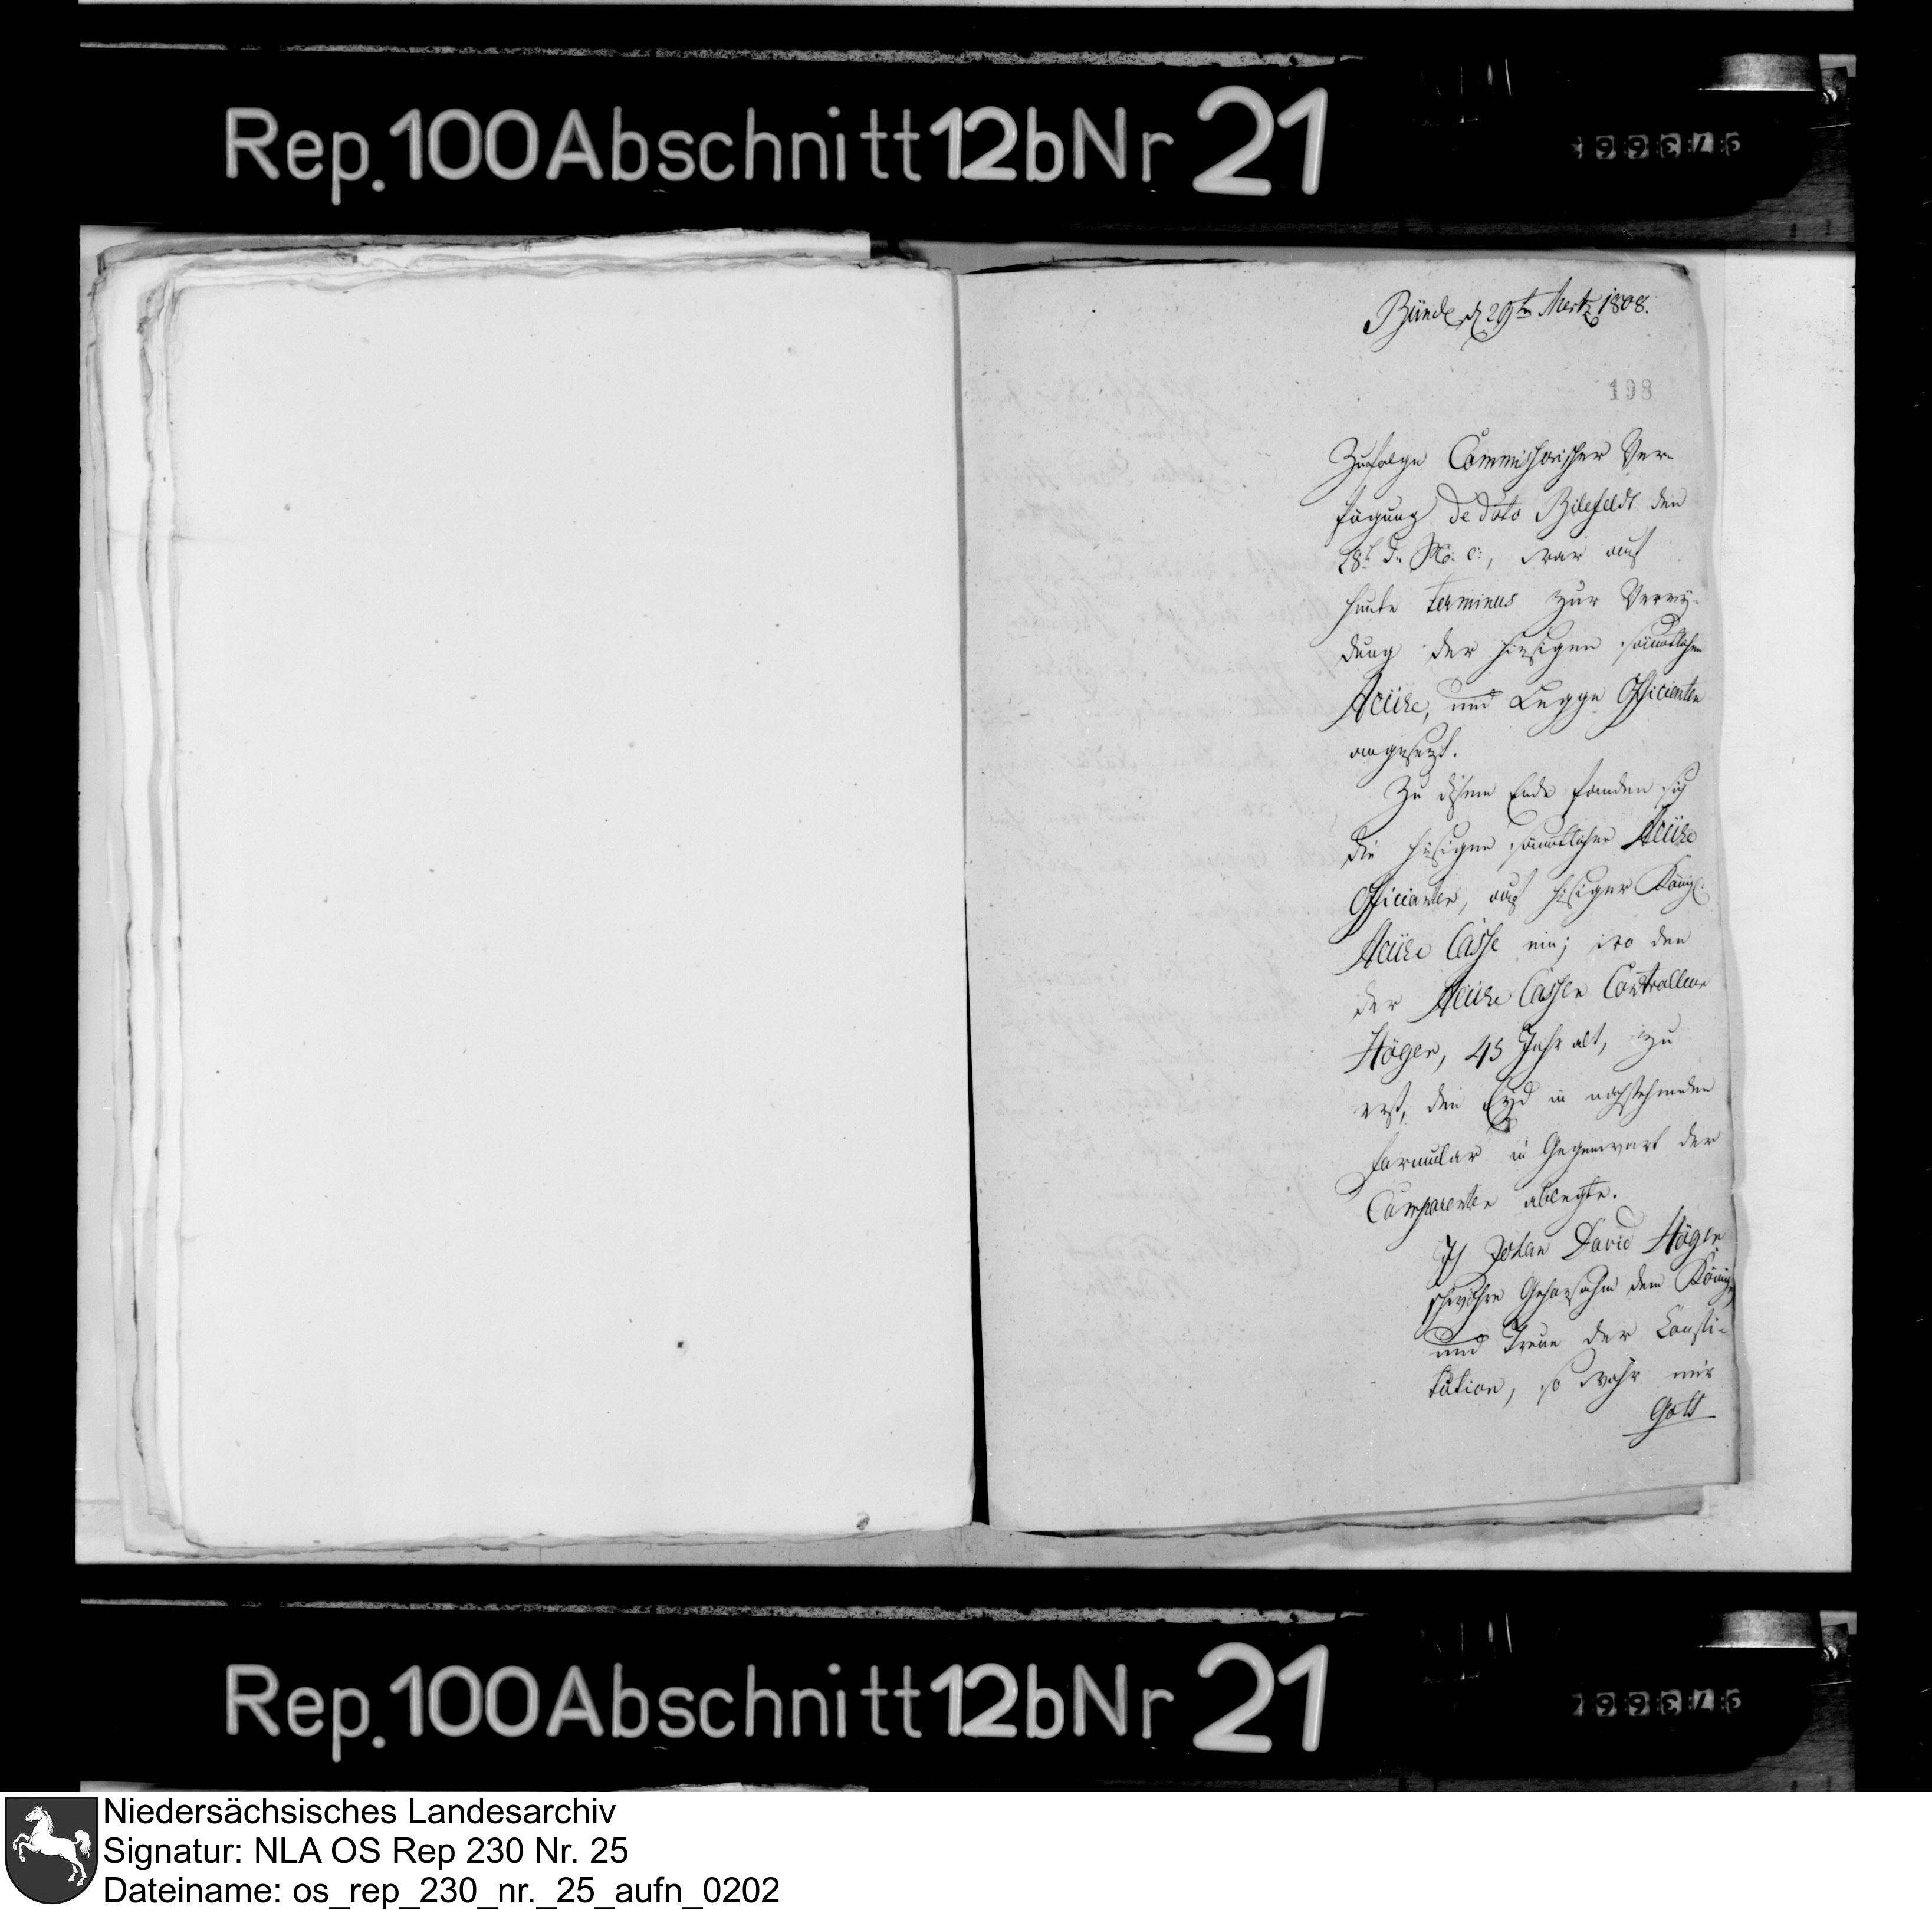 Rep. 100 Abschnitt 12b Nr 21
Bünde, d 29tn Mertz 1808.
198
Zufolge Commissorischer Ver-
fügung de dato Bilefeldt den
28t d. M. c:, war auf
heute Terminus zur Verey-
dung der hiesigen sämtlichen
Accise, und Legge Officianten
angesezt.
Zu diesem Ende fanden sich
die hiesigen sämtlichen Accise
Officianten, auf hiesiger Königl.
Accise Casse ein; wo den
der Accise Cassen Controlleur
Höger, 45 Jahr alt, zu
erst, den Eyd in nachstehenden
Formular in Gegenwart der
Comparenten ablegte.
Ich Johan David Höger
schwöre Gehorsahm dem Könige
und Treue der Consti-
tution, so wahr mir
Gott
Rep. 100 Abschnitt 12b Nr 21
Niedersächsisches Landesarchiv
Signatur: NLA OS Rep 230 Nr. 25
Dateiname: os_rep_230_nr._25_aufn_0202